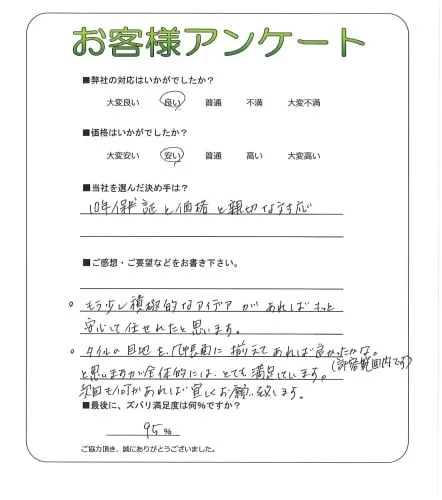 お客様アンケート
■弊社の対応はいかがでしたか？
大変良い 良い 普通 不満 大変不満
■価格はいかがでしたか？
大変安い 安い 普通 高い 大変高い
■当社を選んだ決め手は？
10年保証と価格と親切な対応
■ご感想・ご要望などをお書き下さい。
○ もう少し積極的なアイデアがあればもっと
安心して任せれたと思います。
○ タイルの目地を、に揃えてあれば良かったかな。
(許容範囲内です)
と思いますが全体的には、とても満足しています。
次回も何かあれば宜しくお願い致します。
■最後に、ズバリ満足度は何%ですか？
95%
ご協力頂き、誠にありがとうございました。